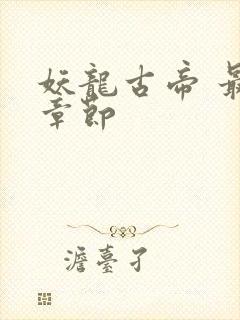 妖龍古帝 最
章節
澹臺孑